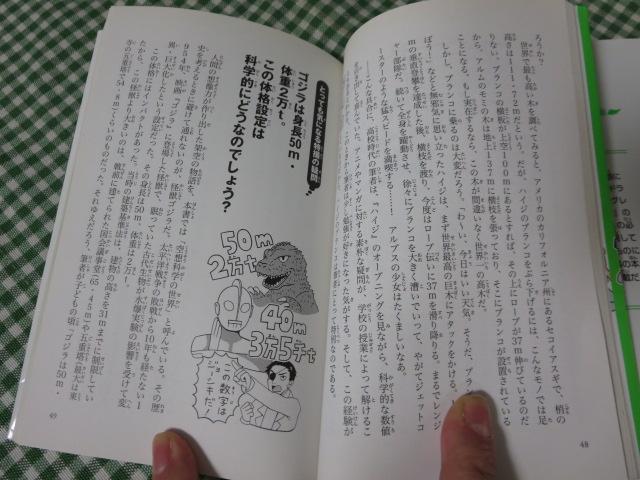 ろうか？
世界で最も高い木を調べてみると、アメリカのカリフォルニア州にあるセコイアスギで、梢の
高さは111・72mだという。だが、ハイジのブランコをぶら下げるには、こんなモノでは足
りない。ブランコの横板が上空100mにあるとすれば、その上にロープが37m伸びているのだ
から、アルムのモミの木は地上137mに横枝を張っており、そこにブランコが設置されている
ことになる。もし実在するなら、この木が間違いなく世界一の高木だ。
しかし、ブランコに乗るのは大変だろう。「わーい、今日はいい天気。そうだ、ブラン
ぼう！」などと無邪気に思い立ったハイジは、まず世界最高の巨木にアタックをかける。
mの垂直登攀を達成した後、横枝を渡り、今度はロープ伝いに37mを滑り降りる。まるでレンジ
ャー部隊だ。続いて全身を躍動させ、徐々にブランコを大きく漕いでいって、やがてジェットコ
ースターのような猛スピードを満喫する……！　アルプスの少女はたくましいなあ。
――こんな具合に、高校時代の筆者は、『ハイジ』のオープニングを見ながら、科学的な数値
アニメやマンガに対する素朴な疑問が、学校の授業によって解けるこ
勉強が好きになった気がする。そして、この経験が
って特別なのである。
48
とっても気になる特撮の疑問
ゴジラは身長50m・
体重2万t。
この体格設定は
科学的にどうなのでしょう？
50m
2万t
40m
3万5千t
この数字は
ショーキだ！
人間の想像力が作り出した架空の物語を、本書では「空想科学の世界」と呼んでいる。その歴
史を考えるときに避けて通れないのが、怪獣ゴジラだ。太平洋戦争の敗戦から10年も経たない1
954年、映画『ゴジラ』に登場した怪獣で、眠っていた古代生物が、水爆実験の影響を受けて変
異・巨大化したという設定だった。その身長は50m、体重は2万t。
この体格にはインパクトがあった。当時の建築基準法は、建物の高さを31mまでに制限してい
たから、この怪獣より大きいのは、戦前に建てられた国会議事堂（65・45m）や五重塔（最大は東
寺の五重塔で54・8m）くらいのものだった。それゆえだろう、筆者が子どもの頃「ゴジラは50m・
49